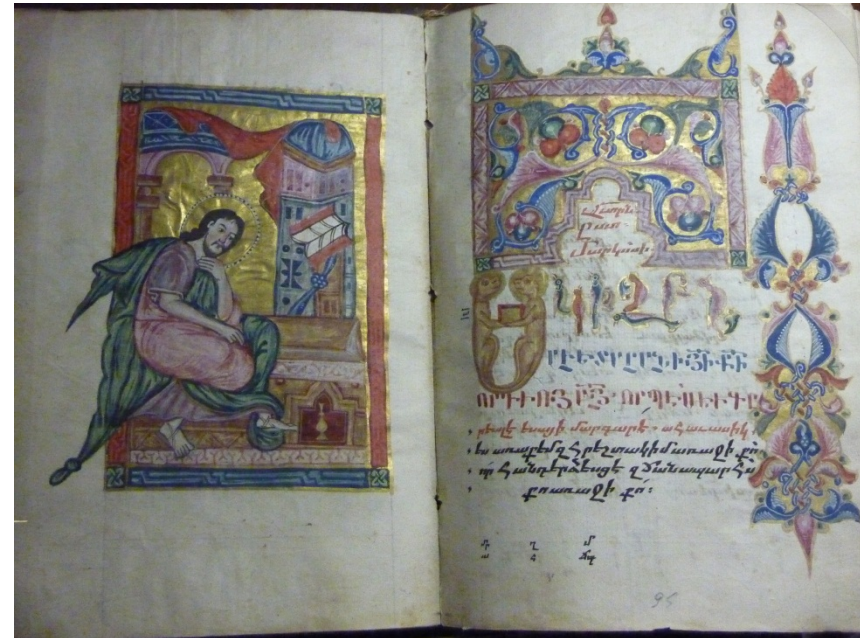 ըստ
Մարկոսի
ՍԿԻԶԲՆ
ԱՒԵՏԱՐԱՆԻ ՅԻ ՔԻ
ՈՐԴՒՈՅ ԱՅ· ՈՐՊԷՍ ԵՒ Գ
րեալ է եսայի մարգարէ · ահաւասիկ
ես առաքեմ զհրեշտակ իմ առաջի քո
որ հանդերձեսցէ զճանապարհս
քո առաջի քո։
95